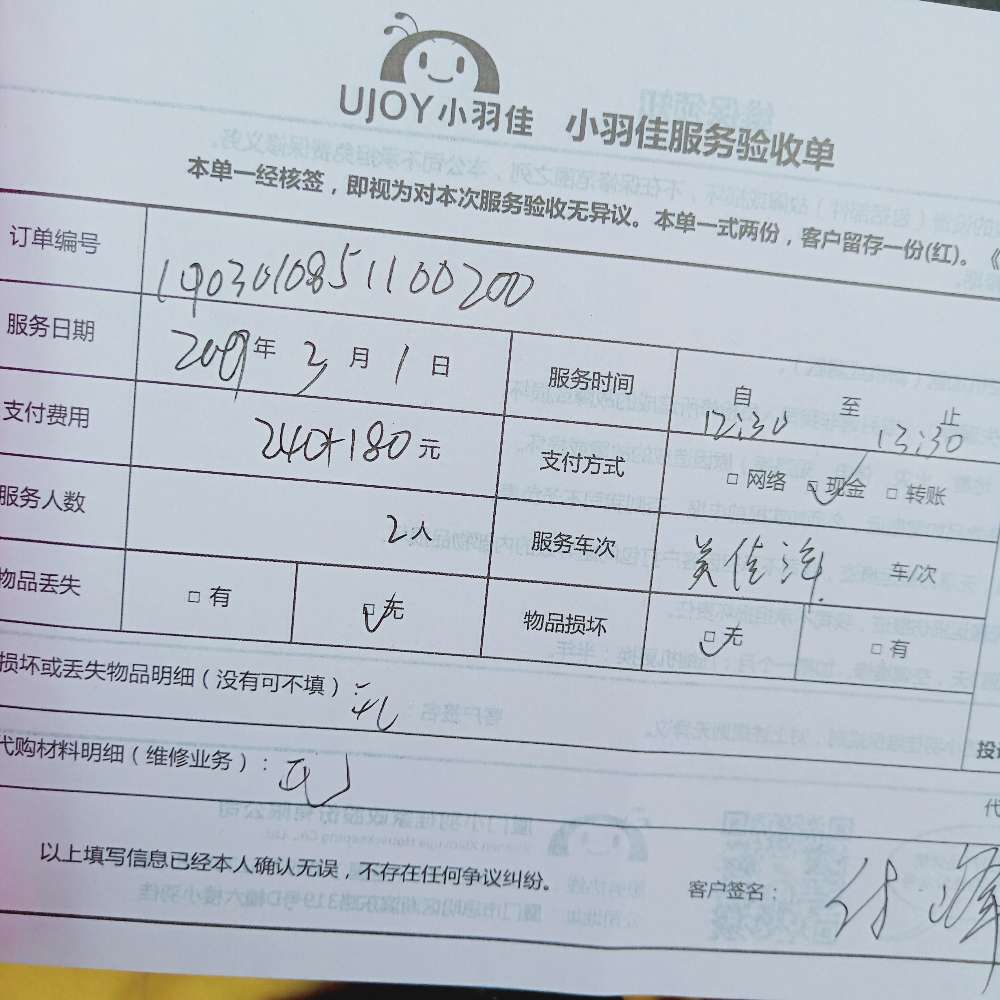 UJOY小羽佳 小羽佳服务验收单
本单一经核签，即视为对本次服务验收无异议。本单一式两份，客户留存一份(红)。《
订单编号 1903010851100200
服务日期 2019年3月1日 服务时间 自12:30至12:30止
支付费用 240+180元 支付方式 □网络 □现金 □转账
服务人数 2人 服务车次 车/次
物品丢失 □有 □无 物品损坏 □无 □有
损坏或丢失物品明细（没有可不填）：无
代购材料明细（维修业务）：无
投
代
以上填写信息已经本人确认无误，不存在任何争议纠纷。 客户签名：